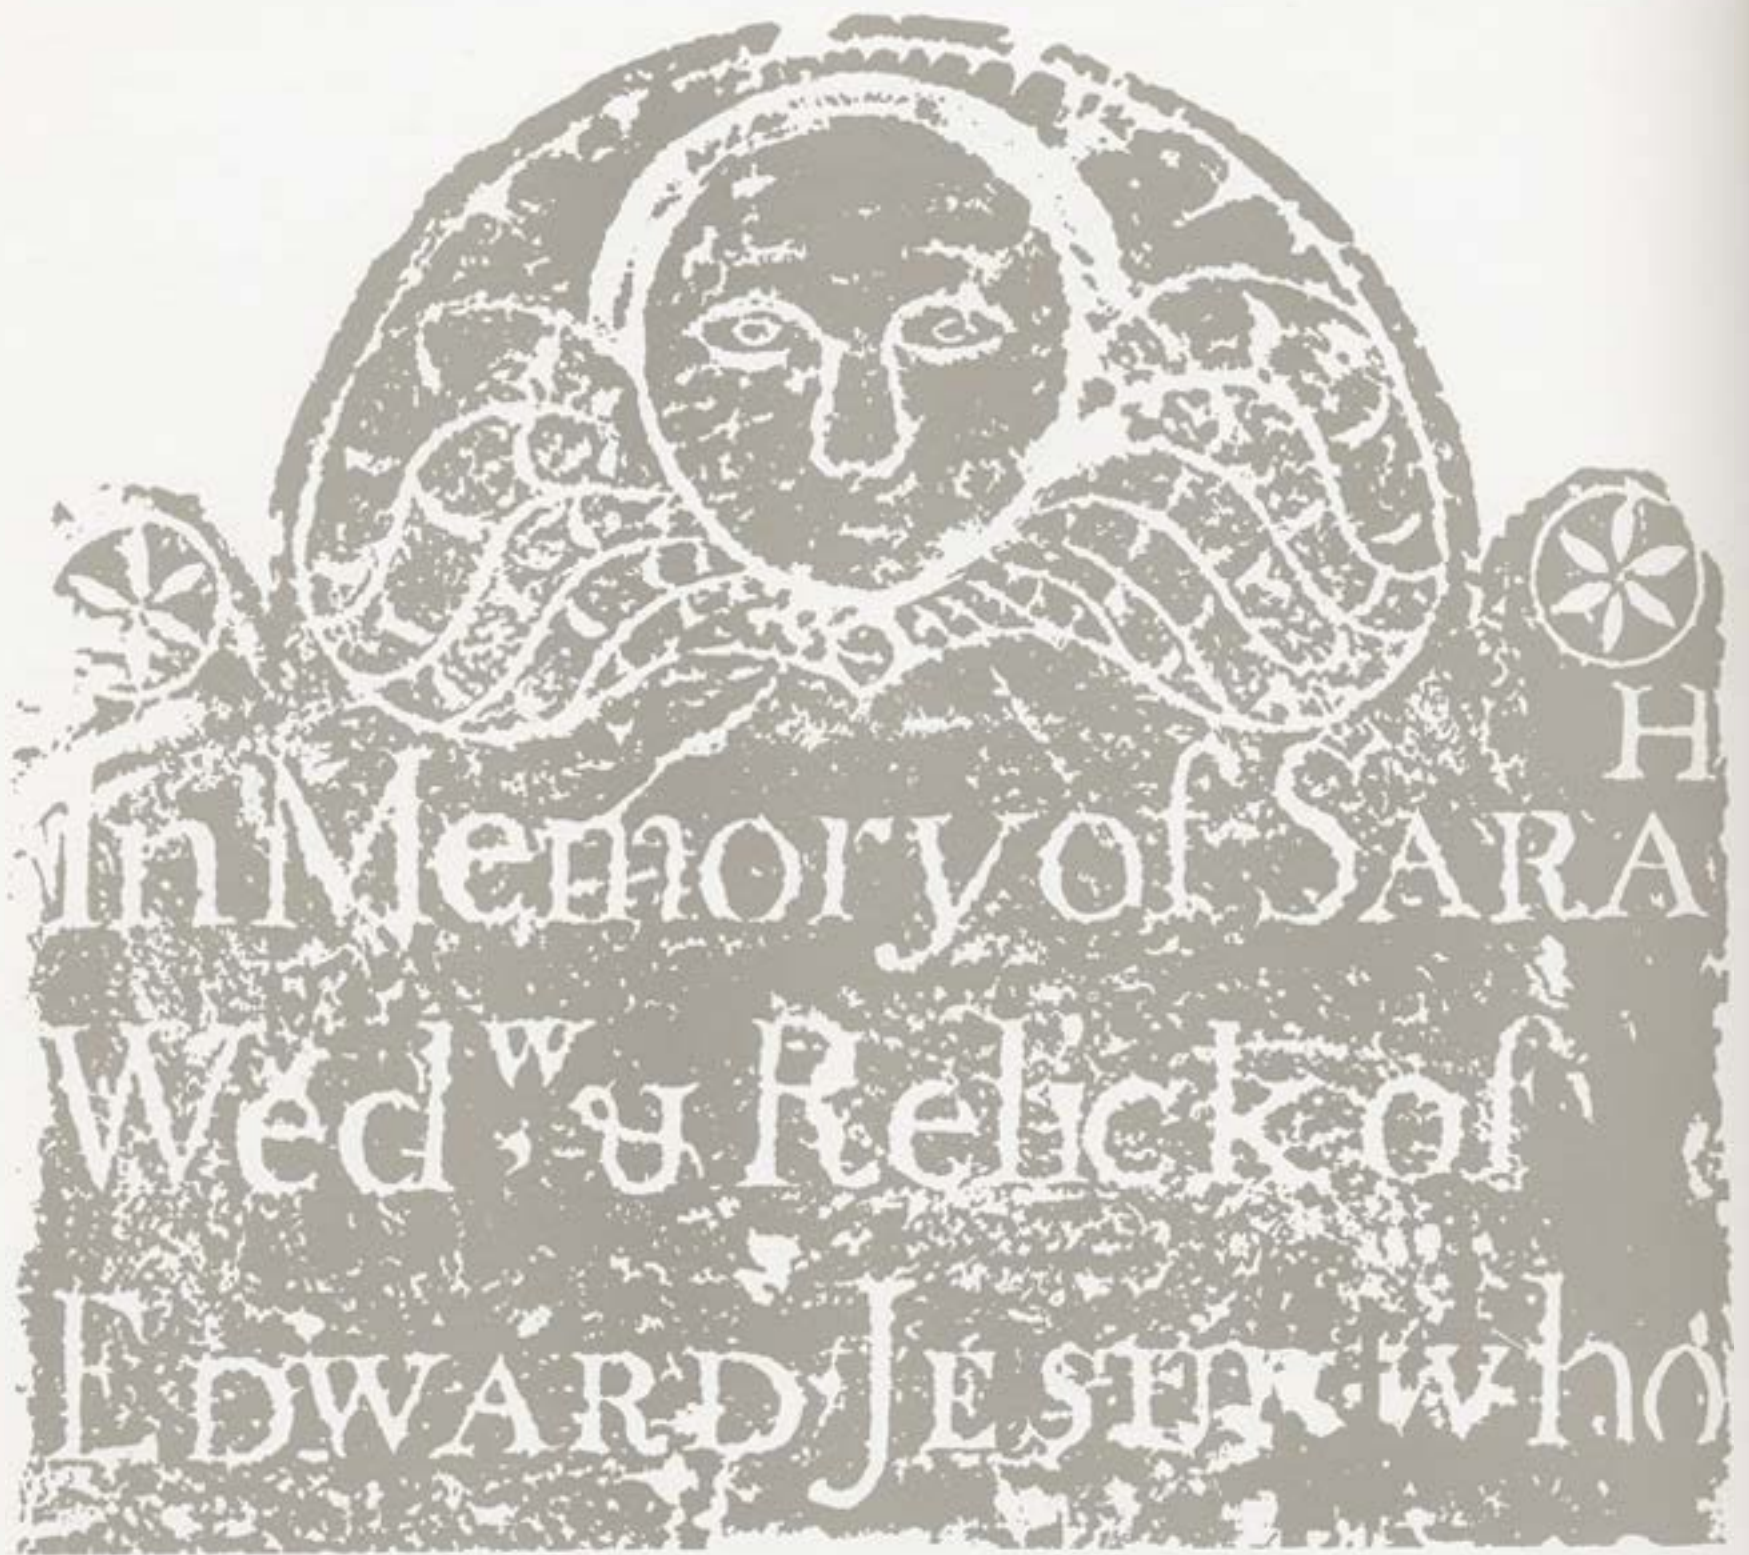 In Memory of SARAH
Wedʷ, & Relick of
EDWARD who